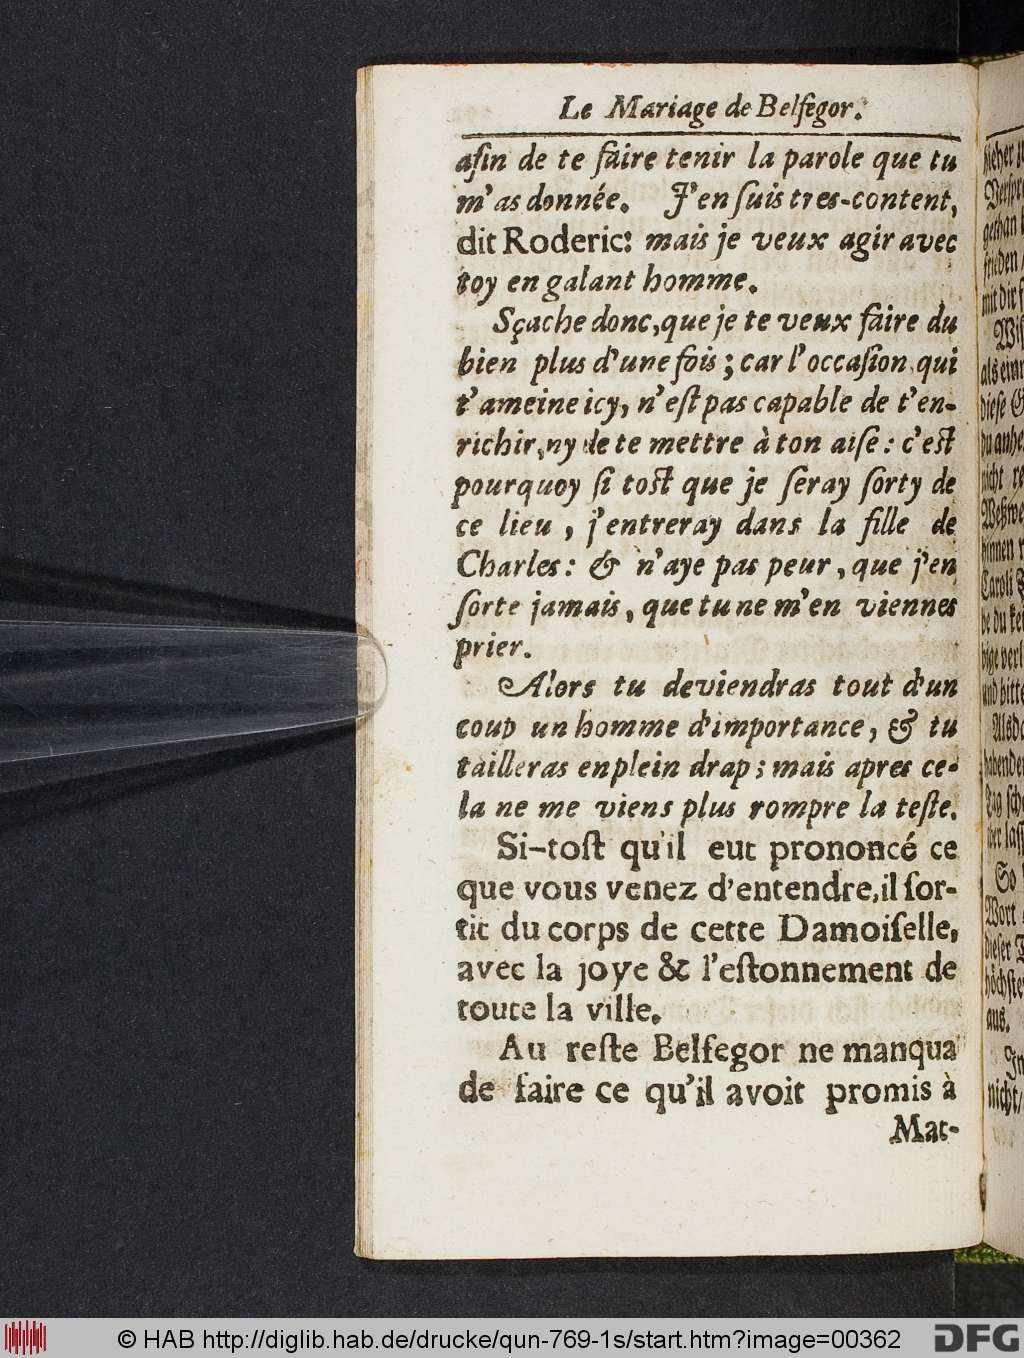 Le Mariage de Belfegor.
afin de te faire tenir la parole que tu
m'as donnée. J'en ſuis tres-content,
dit Roderic: mais je veux agir avec
toy en galant homme.
Sçache donc, que je te veux faire du
bien plus d'une fois; car l'occaſion qui
t'ameine icy, n'eſt pas capable de t'en-
richir, ny de te mettre à ton aiſe: c'eſt
pourquoy ſi toſt que je ſeray ſorty de
ce lieu, j'entreray dans la fille de
Charles: & n'aye pas peur, que j'en
ſorte jamais, que tu ne m'en viennes
prier.
Alors tu deviendras tout d'un
coup un homme d'importance, & tu
tailleras en plein drap; mais apres ce-
la ne me viens plus rompre la teſte.
Si-toſt qu'il eut prononcé ce
que vous venez d'entendre, il ſor-
tit du corps de cette Damoiſelle,
avec la joye & l'eſtonnement de
toute la ville.
Au reſte Belfegor ne manqua
de faire ce qu'il avoit promis à
Mat-
nicht
Caroli
Wort
dieſer
aus.
nicht/
© HAB http://diglib.hab.de/drucke/qun-769-1s/start.htm?image=00362
DFG